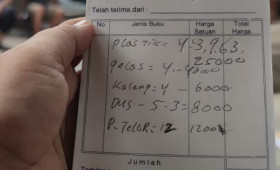 Telah terima dari :
No. Jenis Buku Harga Satuan Total Harga
Plastic = 4-3,9.63,
25000
gelas = 4.-4000
Kaleng = 4 - 6000
DUS - 5-3 = 8000
P. TeLOR = 12 1200
Jumlah